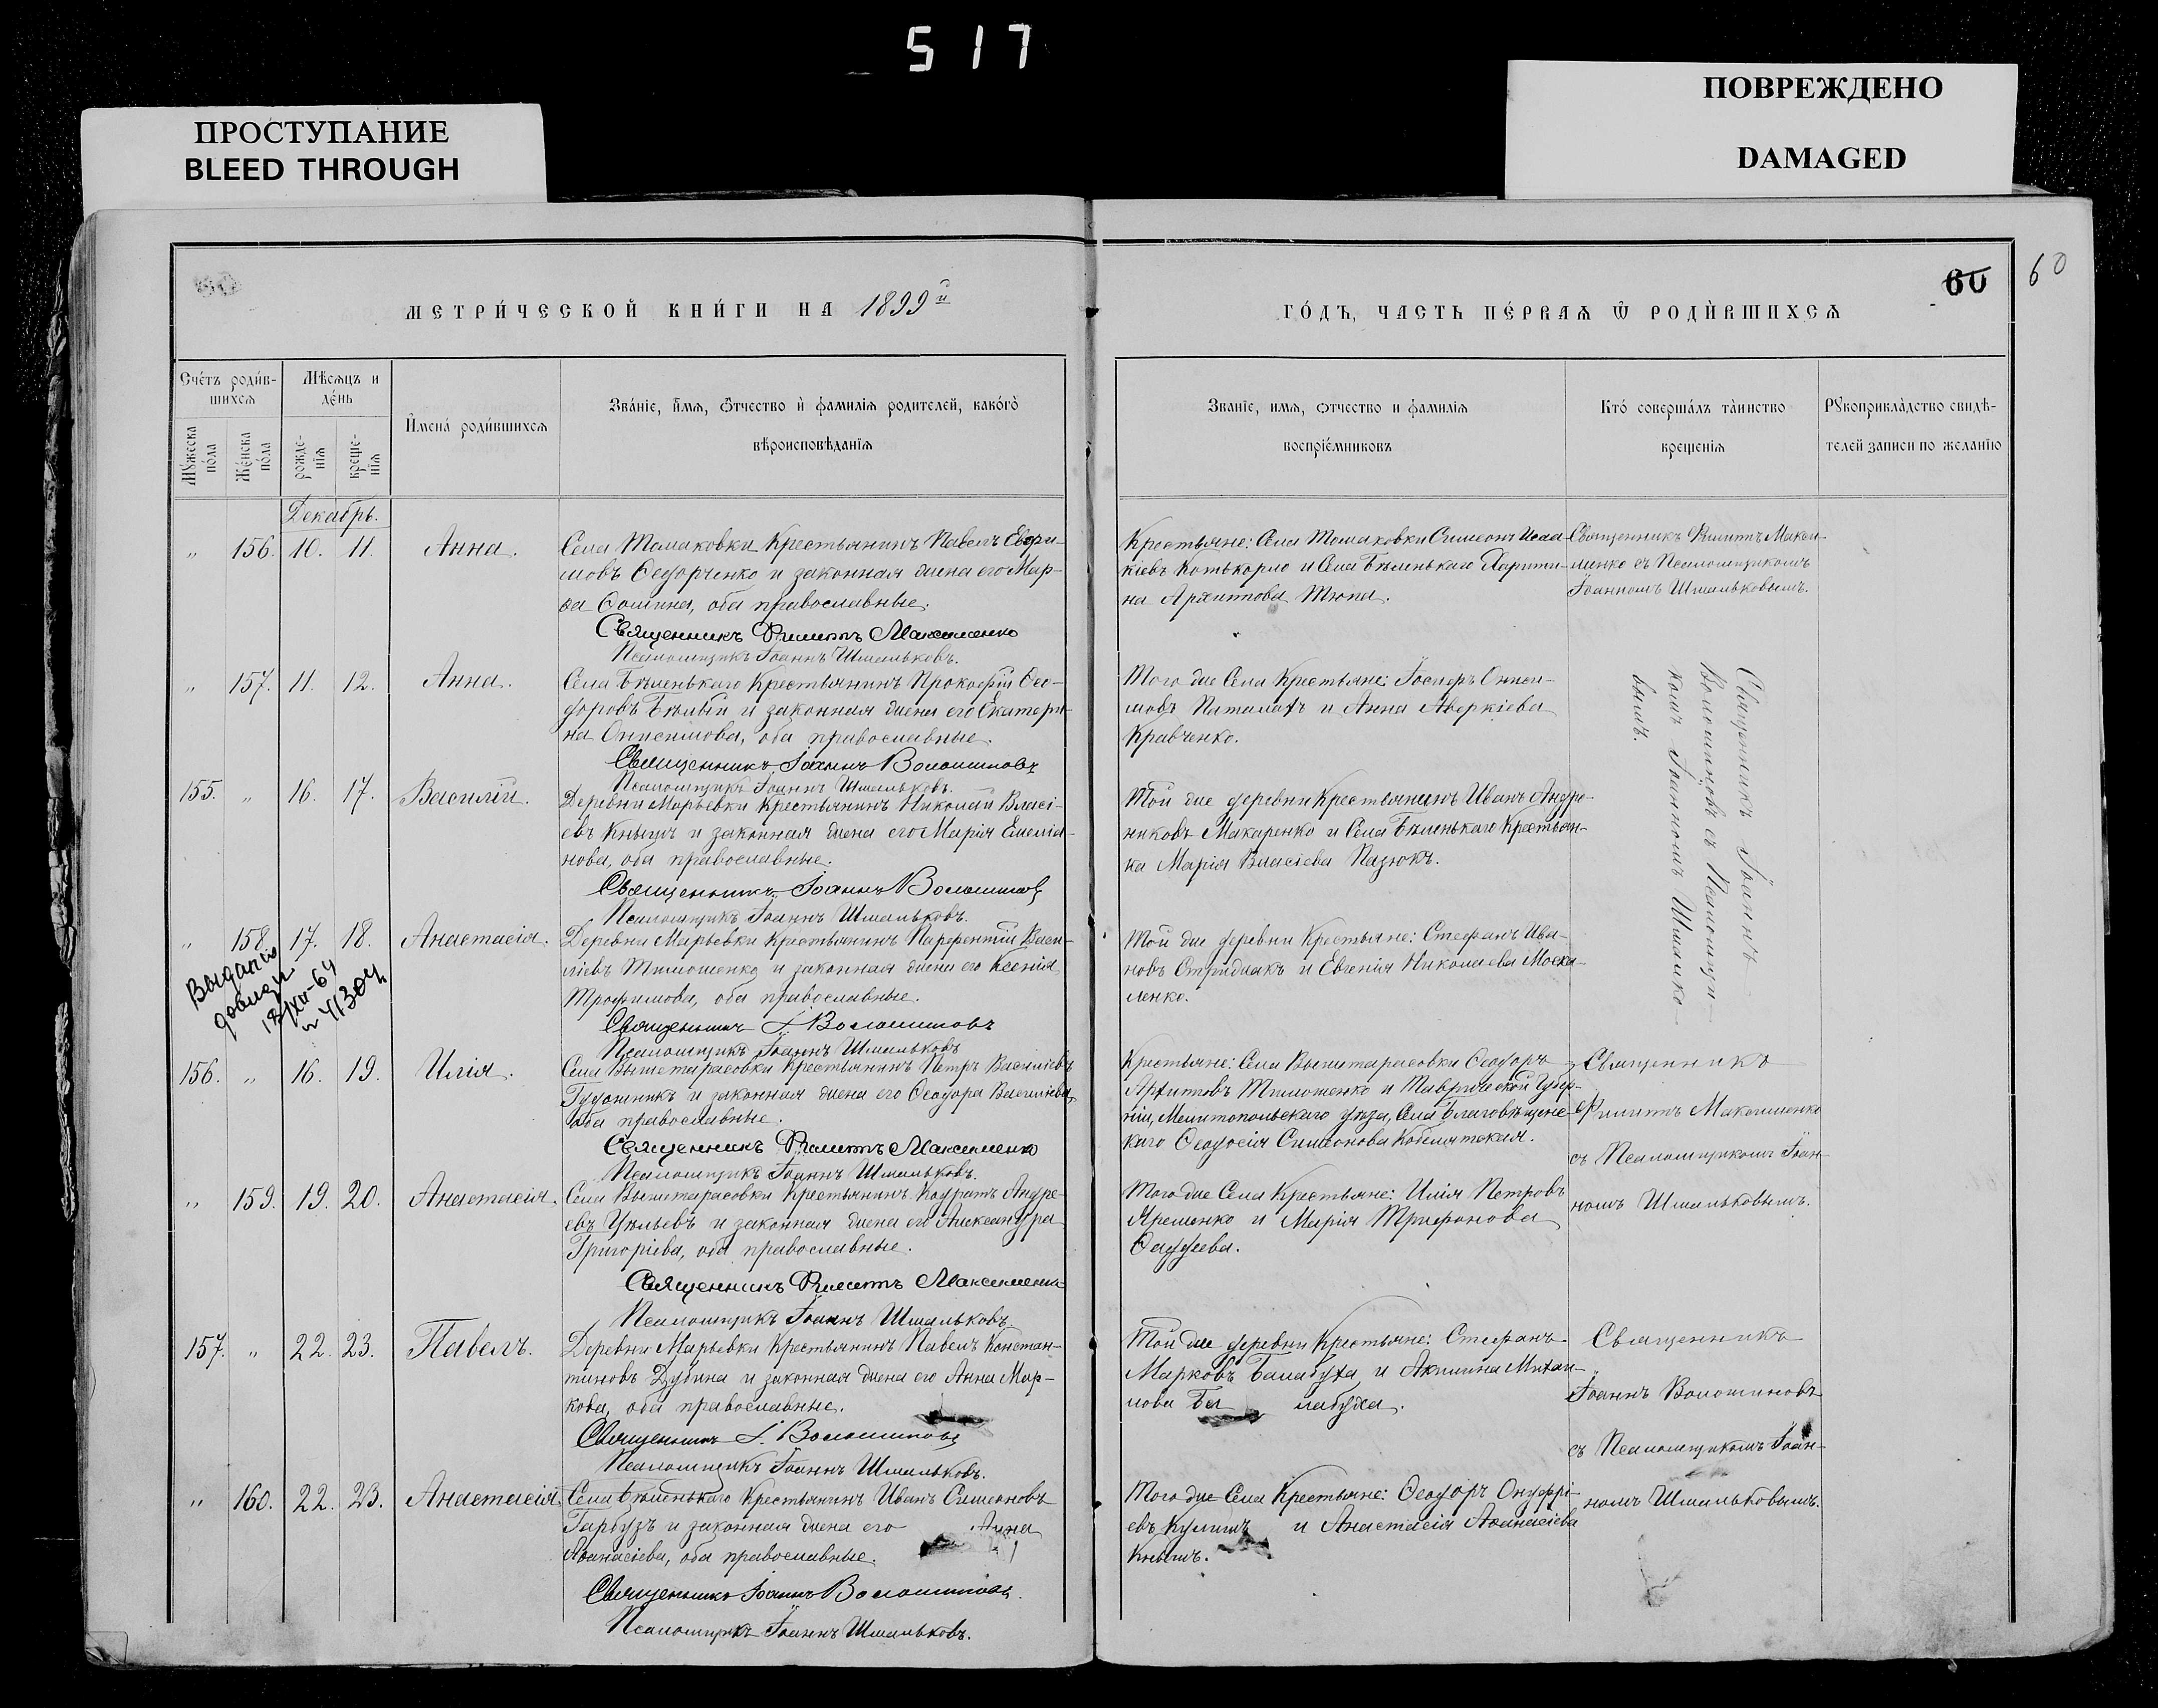 517
ПРОСТУПАНИЕ
BLEED THROUGH
ПОВРЕЖДЕНО
DAMAGED
60
60
МЕТРИ́ЧЕСКОЙ КНИ́ГИ НА 1899й
ГО́ДЪ, ЧАСТЬ ПЕ́РВАѦ Ѿ РОДИ́ВШИХСѦ
Сче́тъ роди́в-
шихсѧ
Мѣсѧцъ и
де́нь
Мꙋжеска
по́ла
Же́нска
по́ла
рожде-
нїѧ
креще-
нїѧ
Имена́ роди́вшихсѧ
Зва́нїе, и́мѧ, ѻ́тчество и҆ фамилїѧ родителей, како́гѡ
вѣроисповѣданїѧ
Званїе, имѧ, ѻтчество и фамилїѧ
воспрїе́мниковъ
Кто́ соверша́лъ та́инство
крещенїѧ
Рꙋкоприкла́дство свидѣ-
телей записи по желанїю
Декабрь.
„ 156. 10. 11. Анна.
Села Томаковки Крестьянинъ Павелъ Евфи-
мовъ Ѳедорченко и законная жена его Мар-
ѳа Ѳомина, оба православные.
Священникъ Филиппъ Максименко
Псаломщикъ Іоаннъ Шмальковъ.
Крестьяне: Села Томаковки Симеонъ Исаа-
кіевъ Котькорло и Села Бѣленькаго Харити-
на Архипова Тюпа.
Священникъ Филиппъ Макси-
менко съ Псаломщикомъ
Іоанномъ Шмальковымъ.
„ 157. 11. 12. Анна.
Села Бѣленькаго Крестьянинъ Прокофій Ѳео-
доровъ Бѣлый и законная жена его Екатери-
на Онисимова, оба православные.
Священникъ Іоаннъ Волошиновъ
Псаломщикъ Іоаннъ Шмальковъ.
Того же Села Крестьяне: Іосифъ Ониси-
мовъ Паталахъ и Анна Аверкіева
Кравченко.
Священникъ Іоаннъ
Волошиновъ съ Псаломщи-
комъ Іоанномъ Шмалько-
вымъ.
155. „ 16. 17. Василій.
Деревни Марьевки Крестьянинъ Николай Власі-
евъ Кнышъ и законная жена его Марія Емеліа-
нова, оба православные.
Священникъ Іоаннъ Волошиновъ
Псаломщикъ Іоаннъ Шмальковъ.
Той же деревни Крестьянинъ Иванъ Андро-
никовъ Макаренко и Села Бѣленькаго Крестьян-
ка Марія Власіева Пазюкъ.
„ 158. 17. 18. Анастасія.
Деревни Марьевки Крестьянинъ Парфентій Васи-
ліевъ Тимошенко и законная жена его Ксенія
Трофимова, оба православные.
Священникъ І. Волошиновъ
Псаломщикъ Іоаннъ Шмальковъ
Той же деревни Крестьяне: Стефанъ Ива-
новъ Стриджакъ и Евгенія Николаева Моска-
ленко.
156. „ 16. 19. Илія.
Села Вышетарасовки Крестьянинъ Петръ Василіевъ
и законная жена его Ѳеодора Василіева,
оба православные.
Священникъ Филиппъ Максименко
Псаломщикъ Іоаннъ Шмальковъ.
Крестьяне: Села Вышетарасовки Ѳеодоръ
Архиповъ Тимошенко и Таврической Губер-
ніи, Мелитопольскаго уѣзда, Села Благовѣщенс-
каго Ѳеодосія Симеонова Кобиляцкая.
Священникъ
Филиппъ Максименко
съ Псаломщикомъ Іоан-
номъ Шмальковымъ.
„ 159. 19. 20. Анастасія.
Села Вышетарасовки Крестьянинъ Кодратъ Андре-
евъ и законная жена его Александра
Григоріева, оба православные.
Священникъ Филиппъ Максименко
Псаломщикъ Іоаннъ Шмальковъ.
Того же Села Крестьяне: Илія Петровъ
Яременко и Марія Трифонова
157. „ 22. 23. Павелъ.
Деревни Марьевки Крестьянинъ Павелъ Констан-
тиновъ Дубина и законная жена его Анна Мар-
кова, оба православные.
Священникъ І. Волошиновъ
Псаломщикъ Іоаннъ Шмальковъ.
Той же деревни Крестьяне: Стефанъ
Марковъ Балабуха и Акилина Михаи-
лова Ба лабуха.
Священникъ
Іоаннъ Волошиновъ
съ Псаломщикомъ Іоан-
номъ Шмальковымъ.
„ 160. 22. 23. Анастасія.
Села Бѣленькаго Крестьянинъ Иванъ Симеоновъ
Гарбузъ и законная жена его Анна
Аѳанасіева, оба православные.
Священникъ Іоаннъ Волошиновъ.
Псаломщикъ Іоаннъ Шмальковъ.
Того же Села Крестьяне: Ѳеодоръ Онуфрі-
евъ Кулишъ и Анастасія Аѳанасіева
Кнышъ.